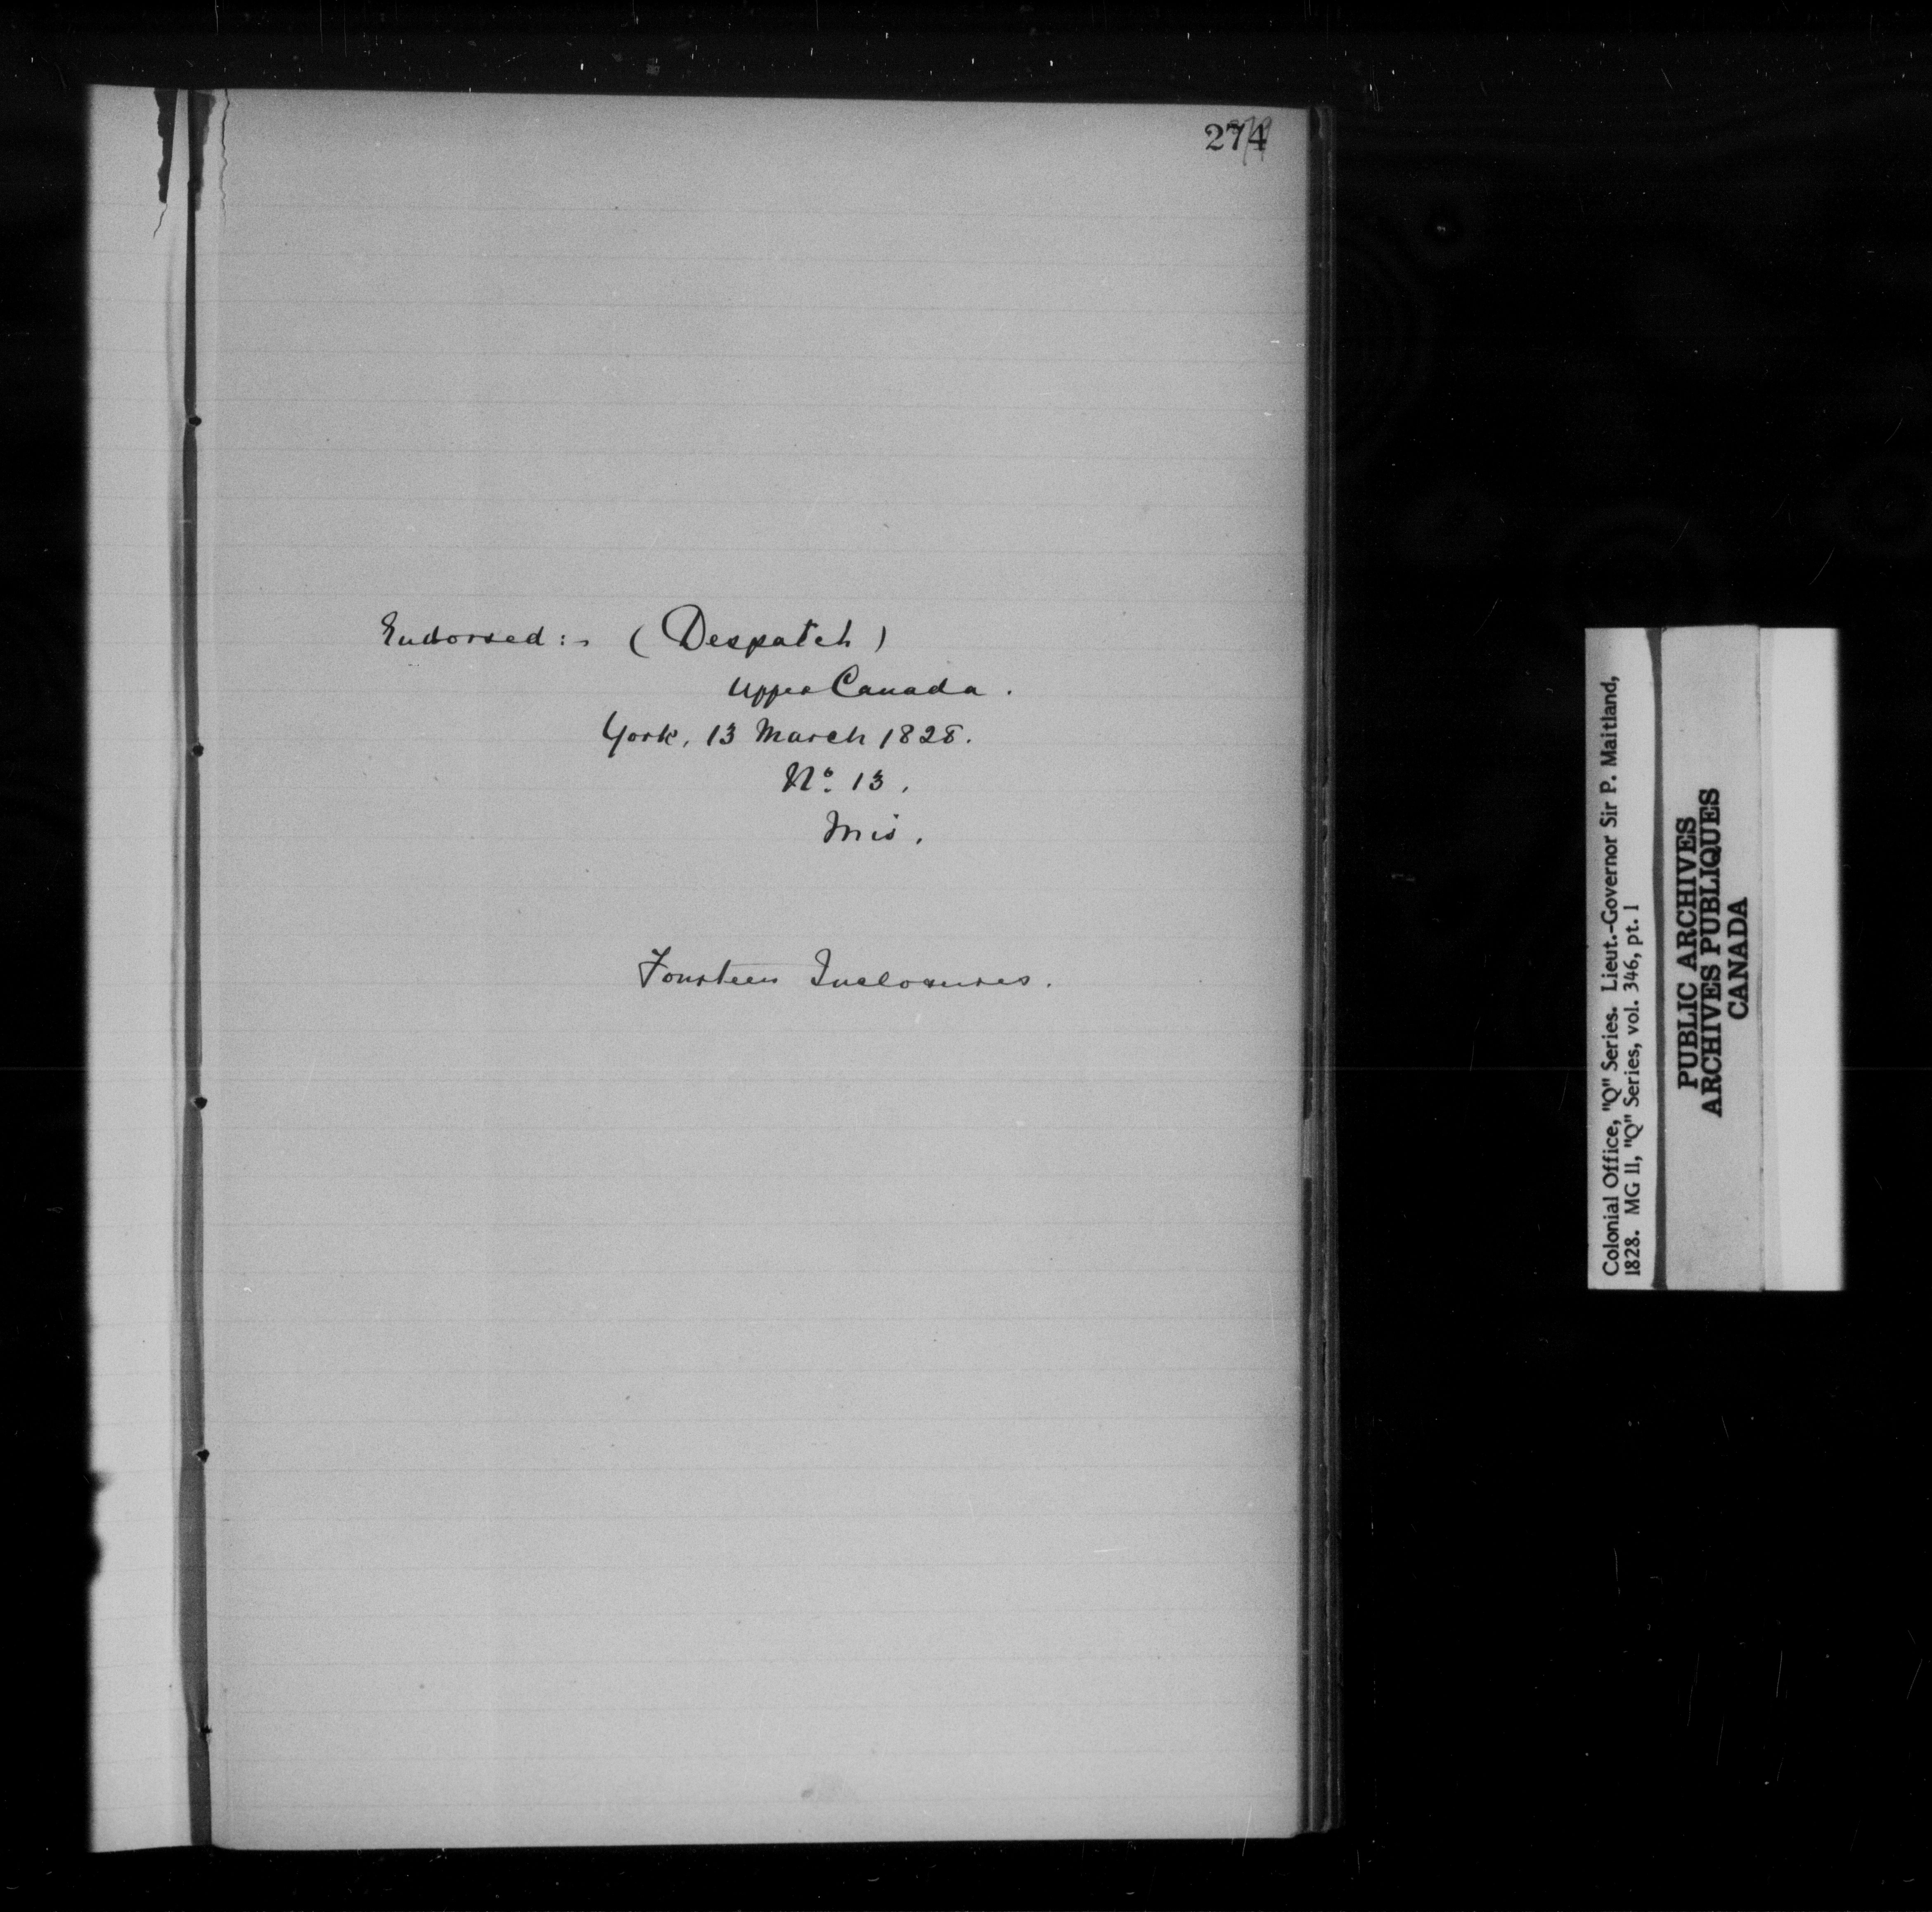 274
Endorsed:- (Despatch)
Upper Canada.
York, 13 March 1828.
No. 13.
Mis.
Fourteen Inclosures.
Colonial Office, "Q" Series. Lieut.-Governor Sir P. Maitland,
1828. MG 11, "Q" Series, vol. 346, pt. 1
PUBLIC ARCHIVES
ARCHIVES PUBLIQUES
CANADA